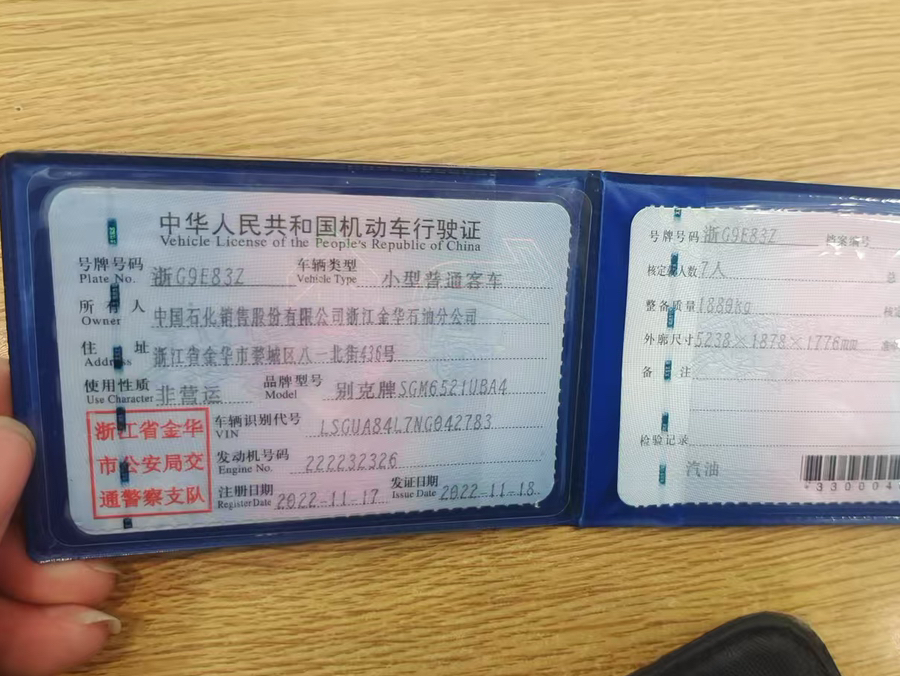 中华人民共和国机动车行驶证
Vehicle License of the People's Republic of China
号牌号码 浙G9E83Z 车辆类型 小型普通客车
Plate No. Vehicle Type
所有人 中国石化销售股份有限公司浙江金华石油分公司
Owner
住址 浙江省金华市婺城区八一北街436号
Address
使用性质 非营运 品牌型号 别克牌SGM6521UBA4
Use Character Model
浙江省金华
市公安局交
通警察支队
车辆识别代号 LSGUA84L7NG042783
VIN
发动机号码 222232326
Engine No.
注册日期 2022-11-17 发证日期 2022-11-18
Register Date Issue Date
号牌号码 浙G9E83Z 档案编号
核定载人数 7人 总
整备质量 1889kg 核定
外廓尺寸 5238×1878×1776mm
备注
检验记录
汽油
*330004